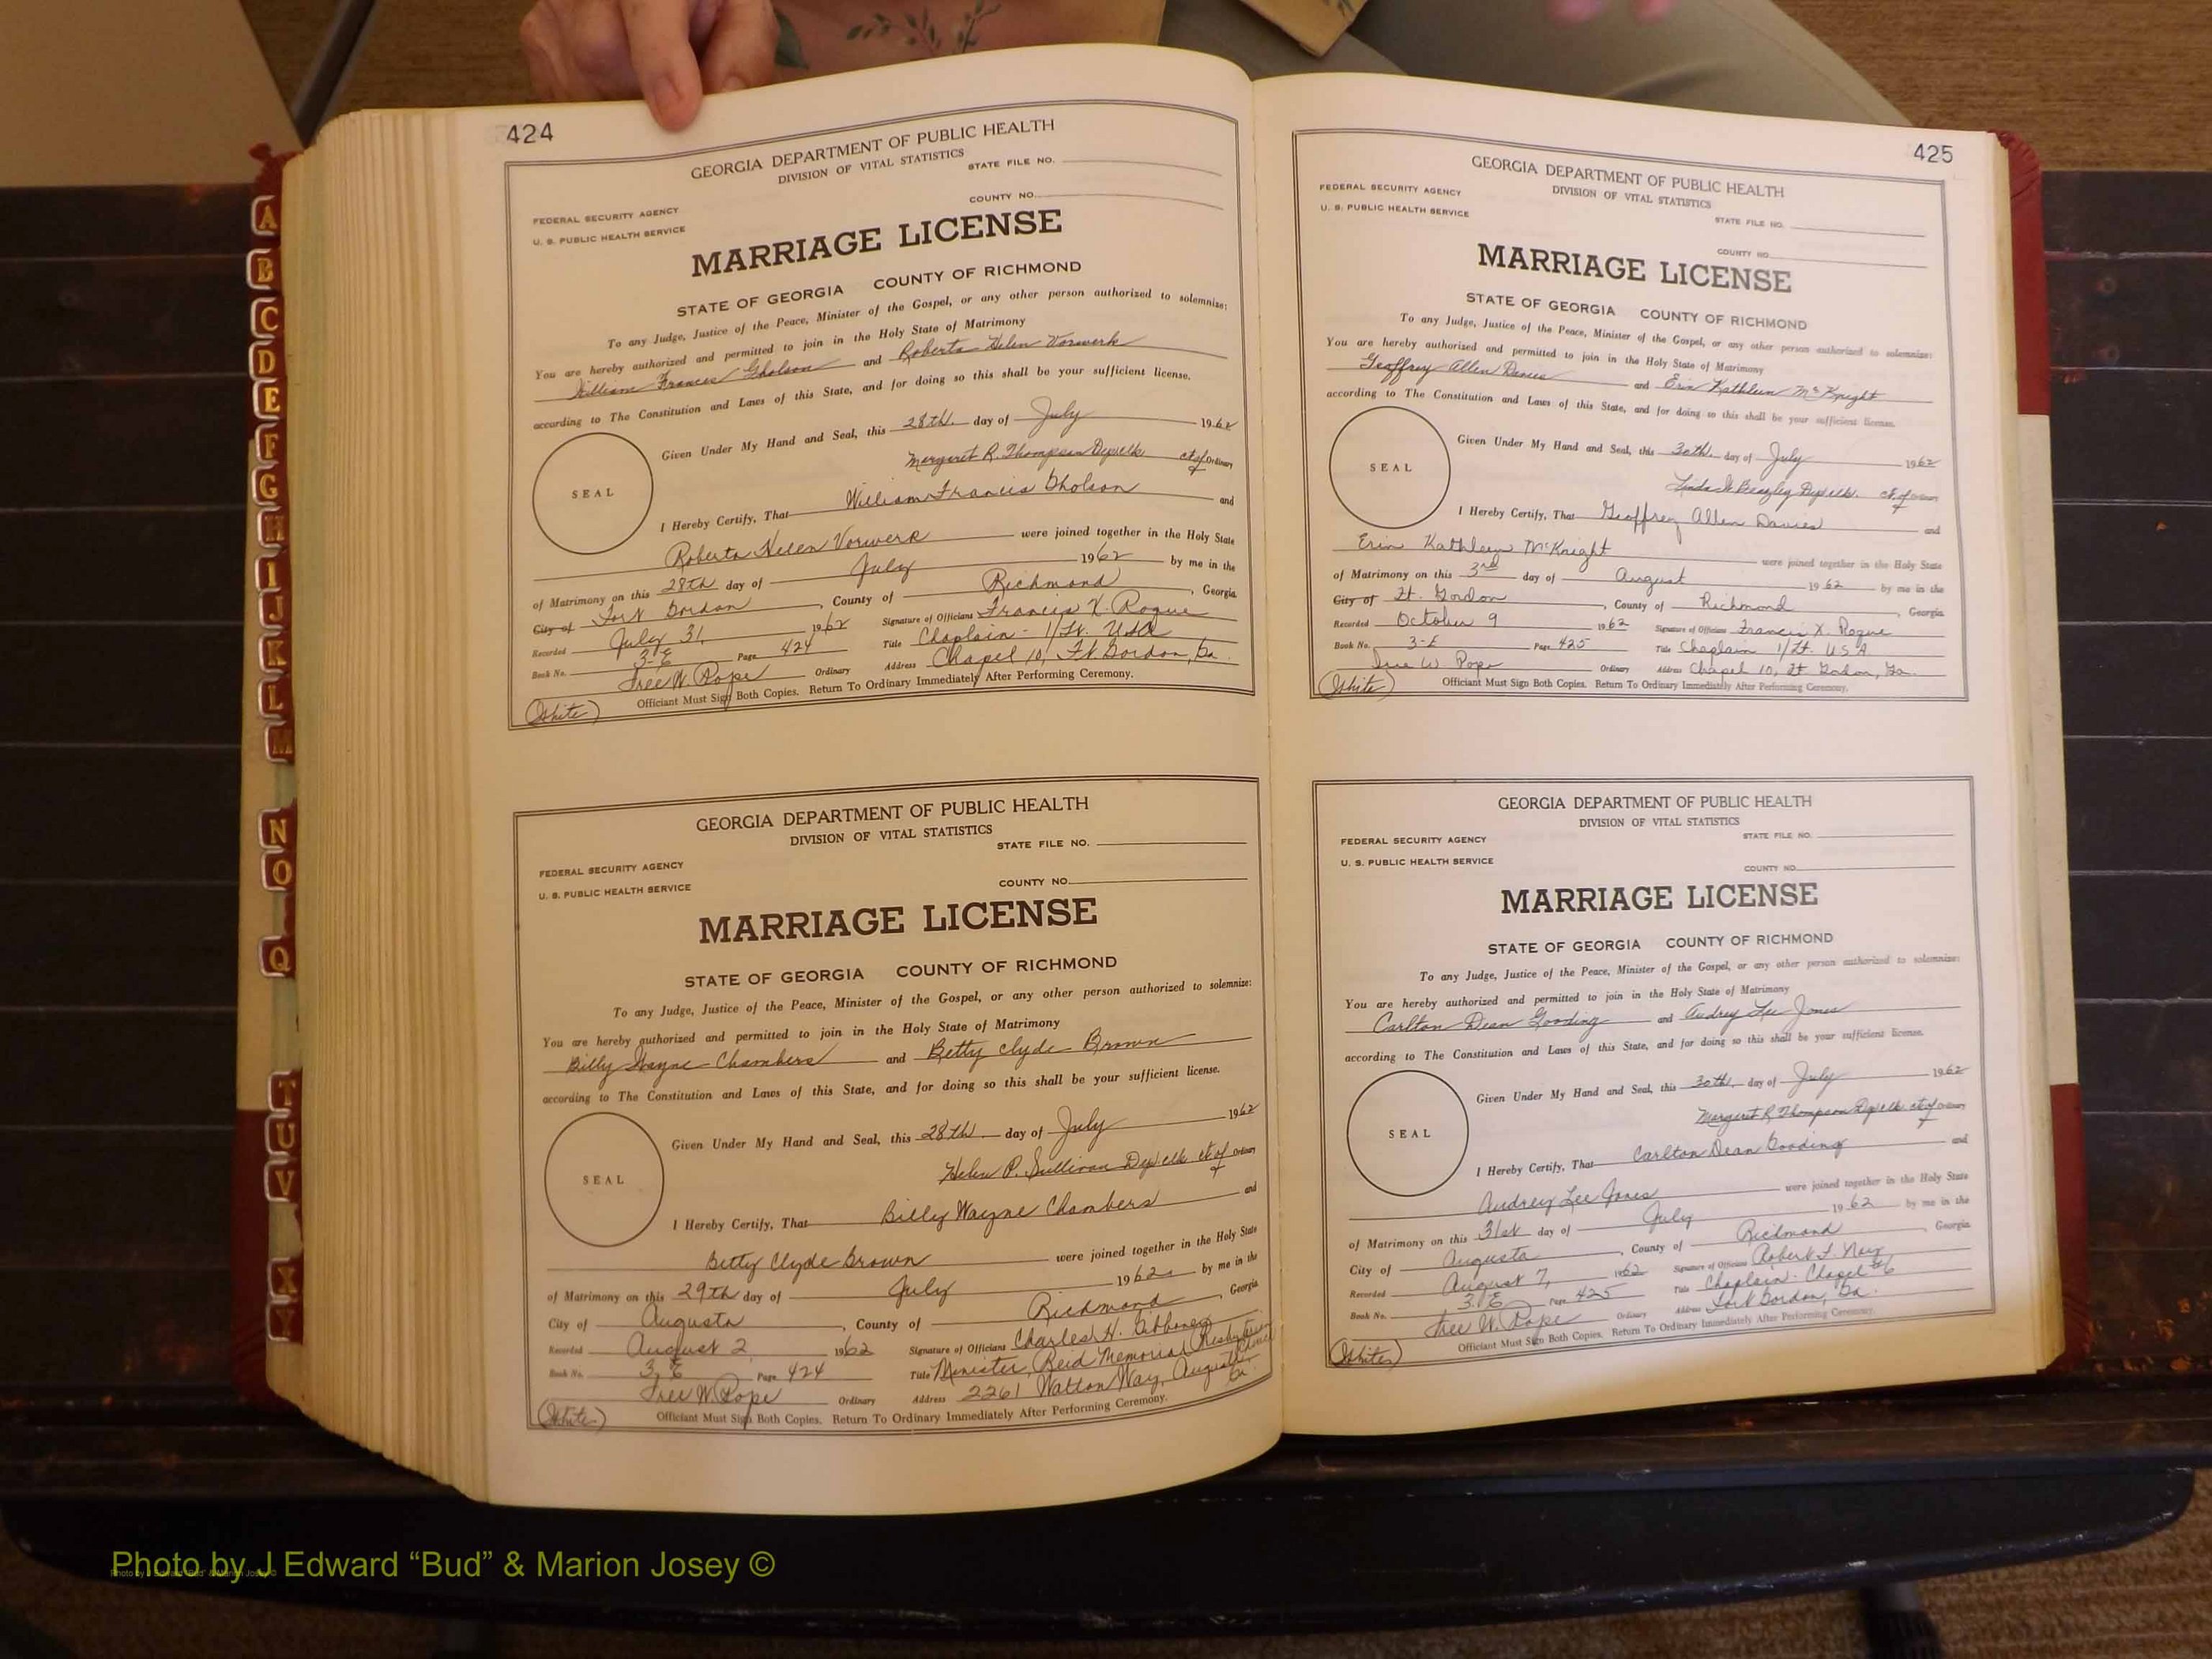 424
GEORGIA DEPARTMENT OF PUBLIC HEALTH
DIVISION OF VITAL STATISTICS
STATE FILE NO.
COUNTY NO.
FEDERAL SECURITY AGENCY
U. S. PUBLIC HEALTH SERVICE
MARRIAGE LICENSE
STATE OF GEORGIA COUNTY OF RICHMOND
To any Judge, Justice of the Peace, Minister of the Gospel, or any other person authorized to solemnize:
You are hereby authorized and permitted to join in the Holy State of Matrimony
William Francis Gholson and Roberta Helen Vorwerk
according to The Constitution and Laws of this State, and for doing so this shall be your sufficient license.
Given Under My Hand and Seal, this 28th day of July 1962
Margaret R. Thompson Dep clk ct of Ordinary
SEAL
I Hereby Certify, That William Francis Gholson and
Roberta Helen Vorwerk were joined together in the Holy State
of Matrimony on this 28th day of July 1962 by me in the
City of Fort Gordon, County of Richmond, Georgia
Recorded July 31, 1962 Signature of Officiant Francis X. Rogue
Book No. 3-E Page 424 Title Chaplain - 1/Lt. USA
Iree W. Pope Ordinary Address Chapel 10, Ft Gordon, Ga.
Officiant Must Sign Both Copies. Return To Ordinary Immediately After Performing Ceremony.
(White)
GEORGIA DEPARTMENT OF PUBLIC HEALTH
DIVISION OF VITAL STATISTICS
STATE FILE NO.
FEDERAL SECURITY AGENCY
U. S. PUBLIC HEALTH SERVICE
COUNTY NO.
MARRIAGE LICENSE
STATE OF GEORGIA COUNTY OF RICHMOND
To any Judge, Justice of the Peace, Minister of the Gospel, or any other person authorized to solemnize:
You are hereby authorized and permitted to join in the Holy State of Matrimony
Billy Wayne Chambers and Betty Clyde Brown
according to The Constitution and Laws of this State, and for doing so this shall be your sufficient license.
Given Under My Hand and Seal, this 28th day of July 1962
Helen P. Sullivan Dep clk ct of Ordinary
SEAL
I Hereby Certify, That Billy Wayne Chambers and
Betty Clyde Brown were joined together in the Holy State
of Matrimony on this 29th day of July 1962 by me in the
City of Augusta, County of Richmond, Georgia
Recorded August 2 1962 Signature of Officiant Charles H. Gibboney
Book No. 3, E Page 424 Title Minister, Reid Memorial Presbyterian Church
Iree W. Pope Ordinary Address 2261 Walton Way, Augusta Ga.
(White) Officiant Must Sign Both Copies. Return To Ordinary Immediately After Performing Ceremony.
425
GEORGIA DEPARTMENT OF PUBLIC HEALTH
DIVISION OF VITAL STATISTICS
FEDERAL SECURITY AGENCY
U. S. PUBLIC HEALTH SERVICE
STATE FILE NO.
COUNTY NO.
MARRIAGE LICENSE
STATE OF GEORGIA COUNTY OF RICHMOND
To any Judge, Justice of the Peace, Minister of the Gospel, or any other person authorized to solemnize:
You are hereby authorized and permitted to join in the Holy State of Matrimony
Geoffrey Allen Davies and Erin Kathleen McKnight
according to The Constitution and Laws of this State, and for doing so this shall be your sufficient license.
Given Under My Hand and Seal, this 30th day of July 1962
Linda Beazley Dep clk. ct. of Ordinary
SEAL
I Hereby Certify, That Geoffrey Allen Davies and
Erin Kathleen McKnight were joined together in the Holy State
of Matrimony on this 3rd day of August 1962 by me in the
City of Ft. Gordon, County of Richmond, Georgia
Recorded October 9 1962 Signature of Officiant Francis X. Rogue
Book No. 3-E Page 425 Title Chaplain 1/Lt. USA
Iree W Pope Ordinary Address Chapel 10, Ft Gordon, Ga.
(White) Officiant Must Sign Both Copies. Return To Ordinary Immediately After Performing Ceremony.
GEORGIA DEPARTMENT OF PUBLIC HEALTH
DIVISION OF VITAL STATISTICS
FEDERAL SECURITY AGENCY
STATE FILE NO.
U. S. PUBLIC HEALTH SERVICE
COUNTY NO.
MARRIAGE LICENSE
STATE OF GEORGIA COUNTY OF RICHMOND
To any Judge, Justice of the Peace, Minister of the Gospel, or any other person authorized to solemnize:
You are hereby authorized and permitted to join in the Holy State of Matrimony
Carlton Dean Gooding and Audrey Lee Jones
according to The Constitution and Laws of this State, and for doing so this shall be your sufficient license.
Given Under My Hand and Seal, this 30th day of July 1962
Margaret R. Thompson Dep clk ct of Ordinary
SEAL
I Hereby Certify, That Carlton Dean Gooding and
Audrey Lee Jones were joined together in the Holy State
of Matrimony on this 31st day of July 1962 by me in the
City of Augusta, County of Richmond, Georgia
Recorded August 7, 1962 Signature of Officiant Robert F. Nay
Book No. 3, E Page 425 Title Chaplain - Chapel #6
Iree W. Pope Ordinary Address Fort Gordon, Ga.
(White) Officiant Must Sign Both Copies. Return To Ordinary Immediately After Performing Ceremony.
A
B
C
D
E
F
G
H
I
J
K
L
M
N
O
Q
T
U
V
X
Y
Photo by J Edward “Bud” & Marion Josey ©
Photo by J Edward “Bud” & Marion Josey ©